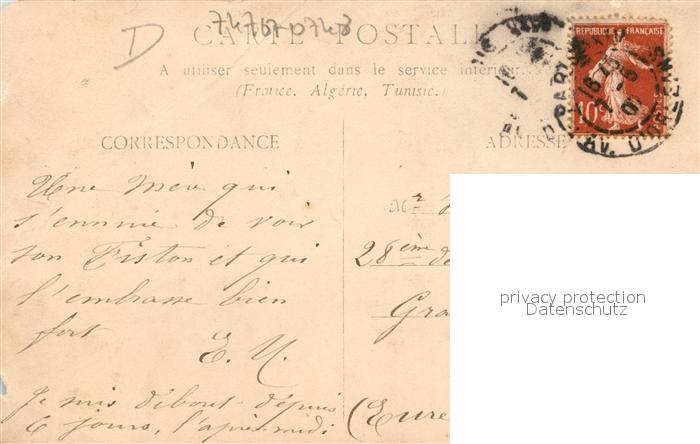 D
CARTE POSTALE
A utiliser seulement dans le service intérieur
(France, Algérie, Tunisie.)
REPUBLIQUE FRANÇAISE
10
POSTES
CORRESPONDANCE
ADRESSE
Une Mère qui
s'ennuie de voir
son Fiston et qui
l'embrasse bien
fort
E. U.
Je suis débout depuis
6 jours, l'après-midi
Mr
28ème de
Gra
(Eure
privacy protection
Datenschutz